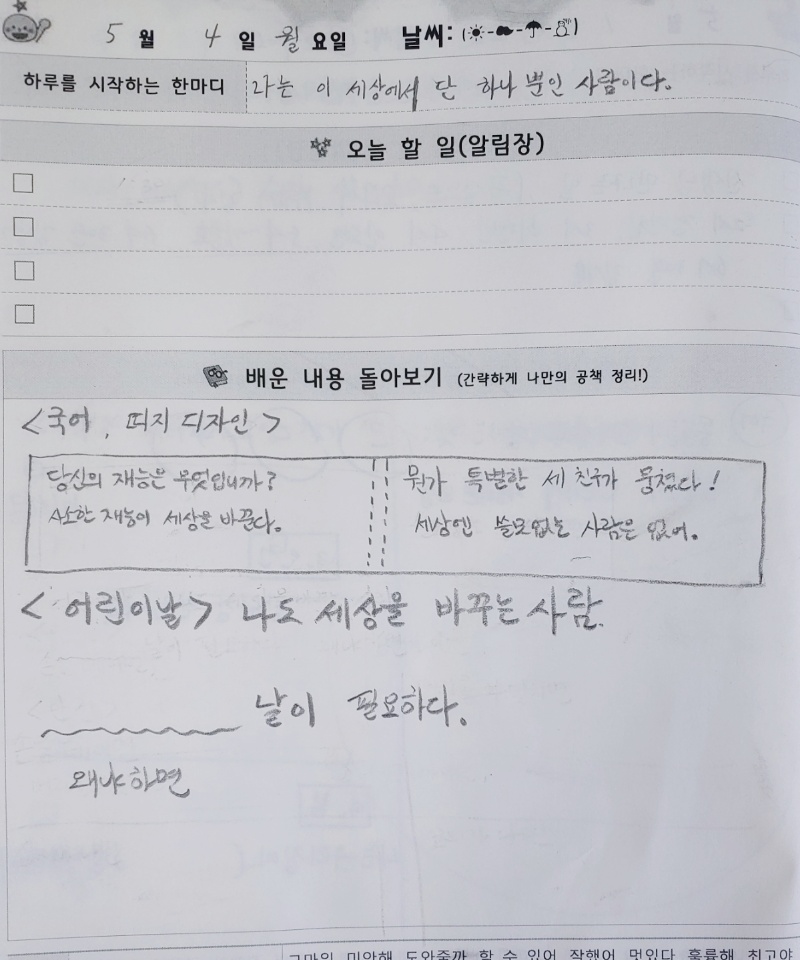 5 월 4 일 월 요일 날씨:
하루를 시작하는 한마디 나는 이 세상에서 단 하나 뿐인 사람이다.
오늘 할 일(알림장)
배운 내용 돌아보기 (간략하게 나만의 공책 정리!)
<국어, 띠지 디자인>
당신의 재능은 무엇입니까? 뭔가 특별한 세 친구가 뭉쳤다!
사소한 재능이 세상을 바꾼다. 세상엔 쓸모없는 사람은 없어.
<어린이날> 나도 세상을 바꾸는 사람.
날이 필요하다.
왜냐하면
그마워 미안해 도와줄까 할 수 있어 잘했어 멋있다 훌륭해 최고야